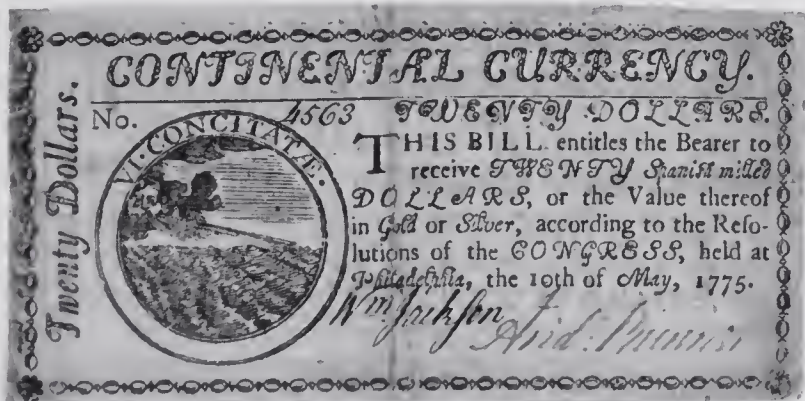 CONTINENTIAL CURRENCY.
Twenty Dollars.
No. 4563 TWENTY DOLLARS.
VI·CONCITATÆ.
THIS BILL entitles the Bearer to
receive TWENTY Spanish milled
DOLLARS, or the Value thereof
in Gold or Silver, according to the Reso-
lutions of the CONGRESS, held at
Philadelphia, the 10th of May, 1775.
Wm Jackson